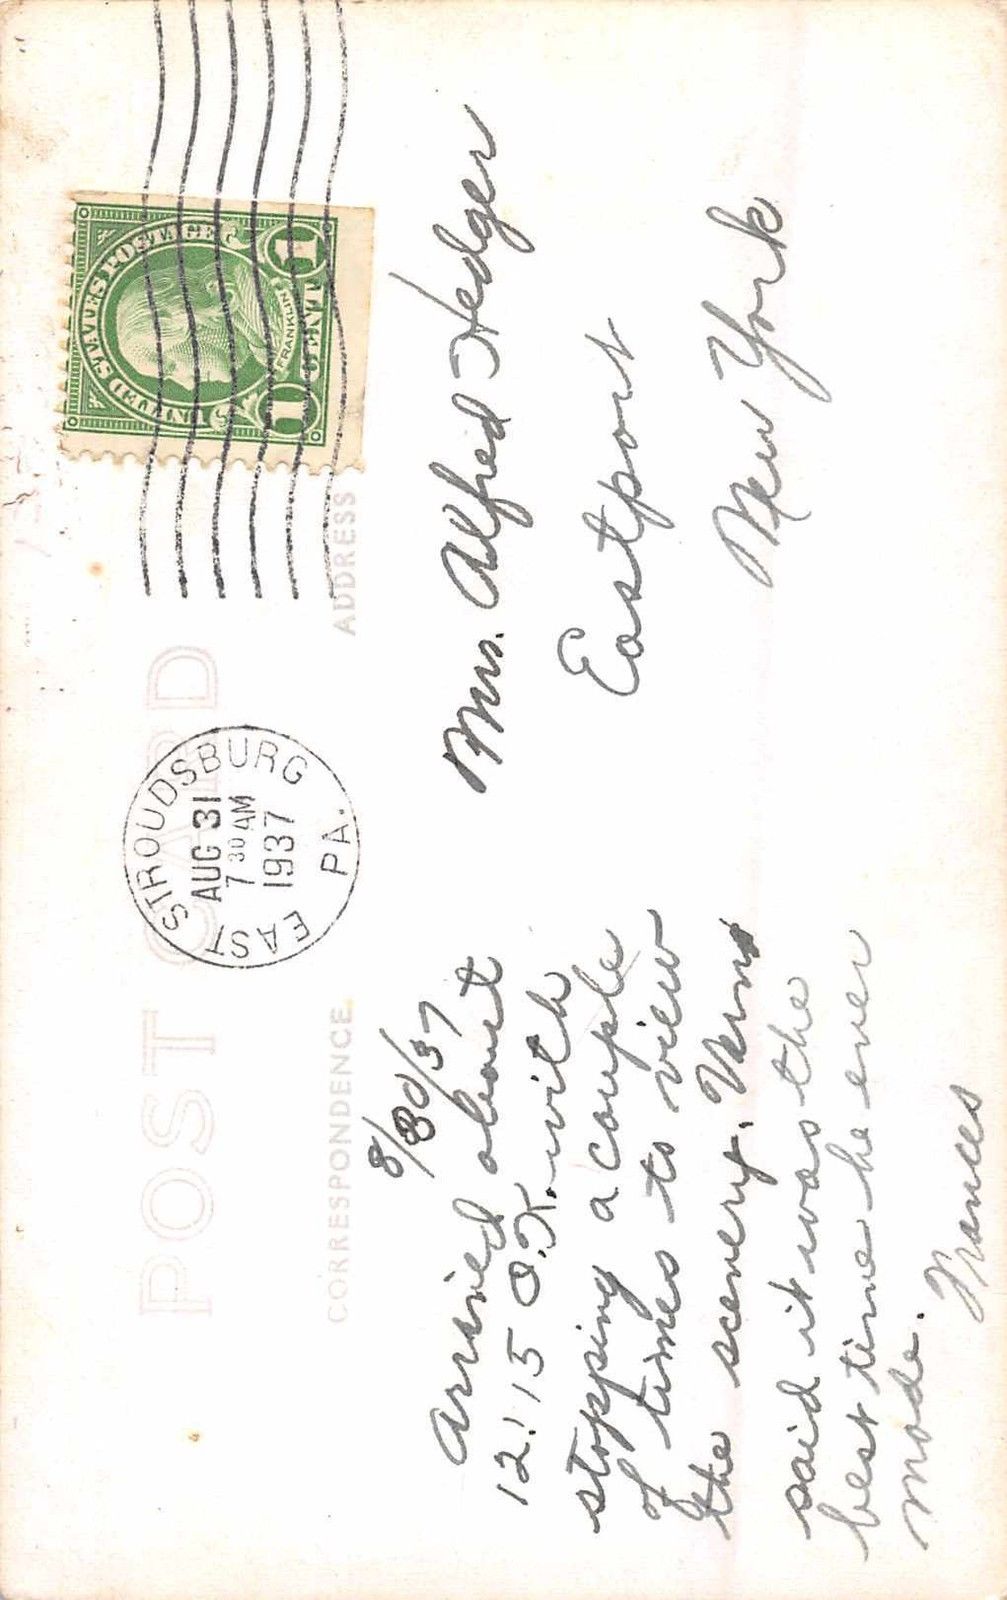 POST CARD
CORRESPONDENCE
ADDRESS
EAST STROUDSBURG
AUG 31
7 30 AM
1937
PA.
UNITED STATES POSTAGE
FRANKLIN
1 CENT 1
8/30/37
Arrived about
12:15 O.K. with
stopping a couple
of times to view
the scenery. Vern
said it was the
best time he ever
made.
Frances
Mrs. Alfred Hedger
Eastport
New York